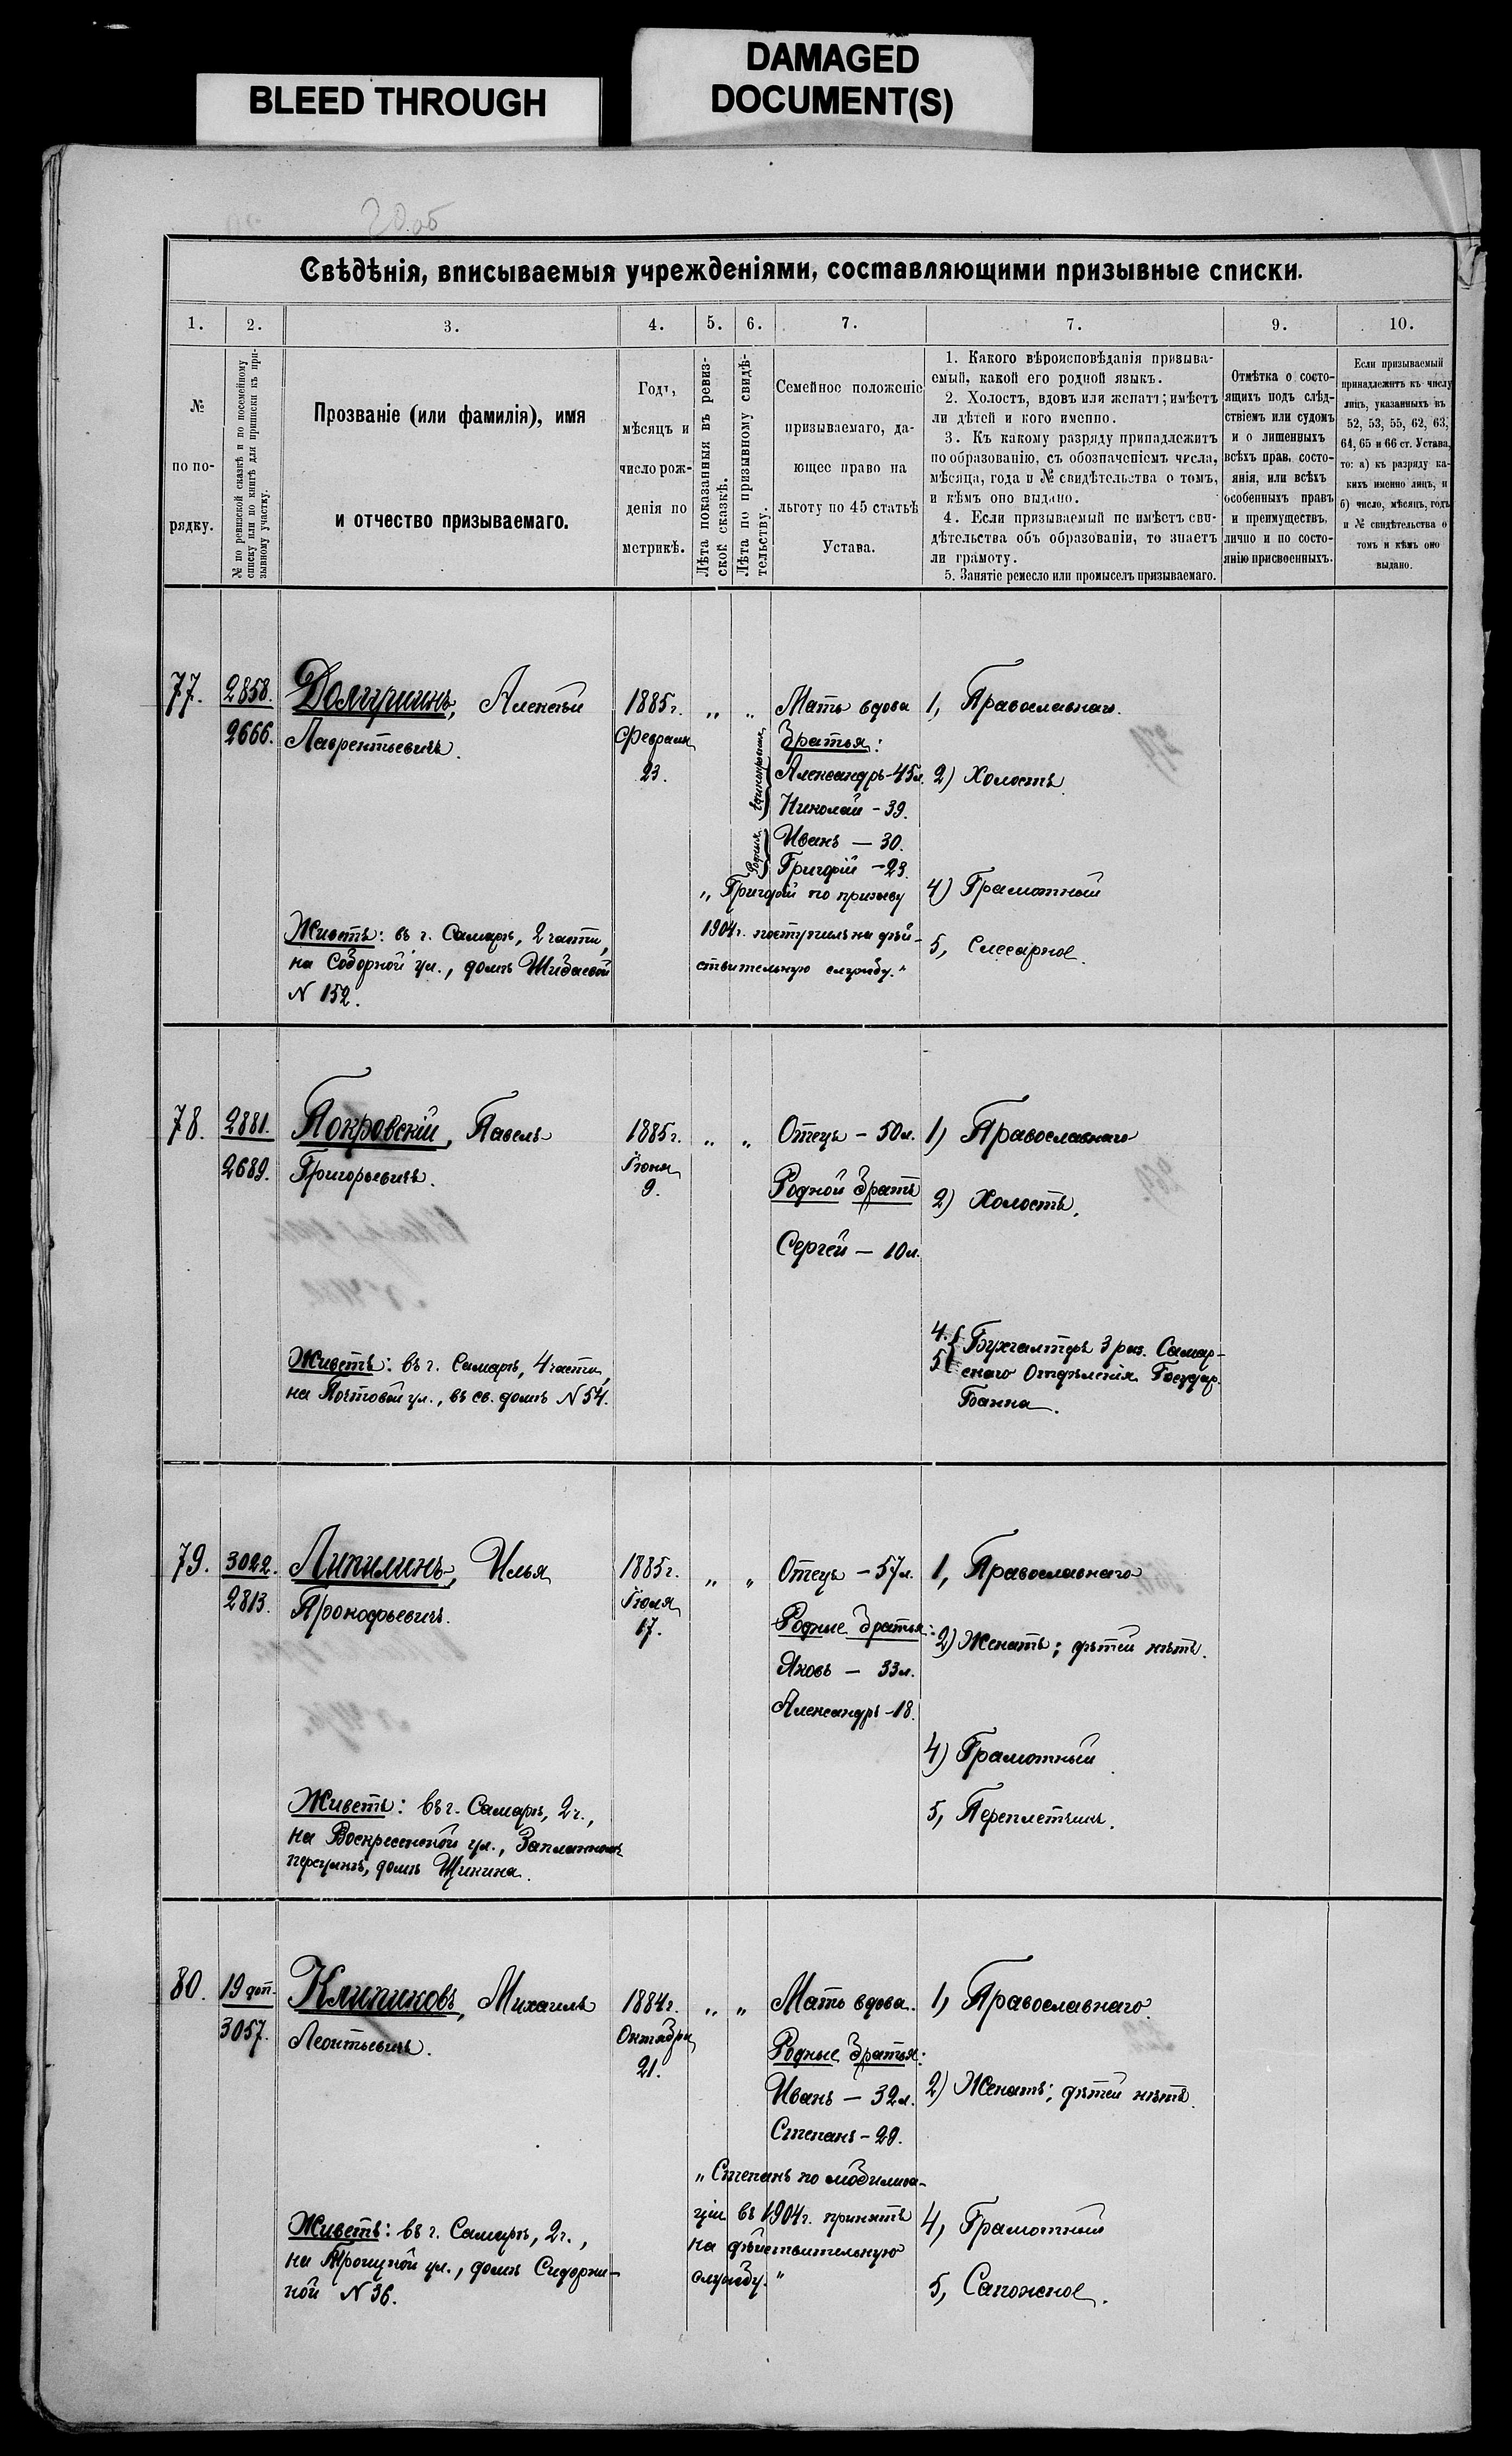 BLEED THROUGH
DAMAGED
DOCUMENT(S)
20 об
Свѣдѣнія, вписываемыя учрежденіями, составляющими призывные списки.
1. 2. 3. 4. 5. 6. 7. 7. 9. 10.
№
по по-
рядку.
№ по ревизской сказкѣ и по посемейному
списку или по книгѣ для приписки къ при-
зывному участку.
Прозваніе (или фамилія), имя
и отчество призываемаго.
Годъ,
мѣсяцъ и
число рож-
денія по
метрикѣ.
Лѣта показанныя въ ревиз-
ской сказкѣ.
Лѣта по призывному свидѣ-
тельству.
Семейное положеніе
призываемаго, да-
ющее право на
льготу по 45 статьѣ
Устава.
1. Какого вѣроисповѣданія призыва-
емый, какой его родной языкъ.
2. Холостъ, вдовъ или женатъ; имѣетъ
ли дѣтей и кого именно.
3. Къ какому разряду принадлежитъ
по образованію, съ обозначеніемъ числа,
мѣсяца, года и № свидѣтельства о томъ,
и кѣмъ оно выдано.
4. Если призываемый не имѣетъ сви-
дѣтельства объ образованіи, то знаетъ
ли грамоту.
5. Занятіе ремесло или промыселъ призываемаго.
Отмѣтка о состо-
ящихъ подъ слѣд-
ствіемъ или судомъ
и о лишенныхъ
всѣхъ прав. состо-
янія, или всѣхъ
особенныхъ правъ
и преимуществъ,
лично и по состо-
янію присвоенныхъ.
Если призываемый
принадлежитъ къ числу
лицъ, указанныхъ въ
52, 53, 55, 62, 63,
64, 65 и 66 ст. Устава,
то: а) къ разряду ка-
кихъ именно лицъ, и
б) число, мѣсяцъ, годъ
и № свидѣтельства о
томъ и кѣмъ оно
выдано.
77.
2858.
2666.
Долгушинъ, Алексѣй
Лаврентьевичъ.
Живетъ: въ г. Самарѣ, 2 части,
на Соборной ул., домъ Шибаевой
N 152.
1885 г.
Февраля
23.
" "
Мать вдова
Братья:
Единокровные
Александръ - 45 л.
Николай - 39.
Родные
Иванъ — 30.
Григорій - 23.
„Григорій по призыву
1904 г. поступилъ на дѣй-
ствительную службу."
1, Православнаго.
2) Холостъ
4) Грамотный
5, Слесарное.
78.
2881.
2689.
Покровскій, Павелъ
Григорьевичъ.
Живетъ: въ г. Самарѣ, 4 части,
на Почтовой ул., въ св. домѣ N 54.
1885 г.
Іюня
9.
" "
Отецъ - 50 л.
Родной братъ
Сергей — 10 л.
1) Православнаго
2) Холостъ.
4.
5 { Бухгалтеръ 3 раз. Самар-
скаго Отдѣленія Государ.
Банка.
79.
3022.
2813.
Липилинъ, Илья
Прокофьевичъ.
Живетъ: въ г. Самарѣ, 2 ч.,
на Воскресенской ул., Запланномъ
переулкѣ, домъ Щикина.
1885 г.
Іюля
17.
" "
Отецъ - 57 л.
Родные братья:
Яковъ — 33 л.
Александръ - 18.
1, Православнаго
2) Женатъ; дѣтей нѣтъ.
4) Грамотный
5, Переплетчикъ.
80.
19 доп.
3057.
Клипиковъ, Михаилъ
Леонтьевичъ.
Живетъ: въ г. Самарѣ, 2 ч.,
на Троицкой ул., домъ Сидорки-
ной N 36.
1884 г.
Октября
21.
" "
Мать вдова.
Родные братья:
Иванъ — 32 л.
Степанъ - 29.
„Степанъ по мобилиза-
ціи въ 1904 г. принятъ
на дѣйствительную
службу."
1, Православнаго
2) Женатъ; дѣтей нѣтъ.
4, Грамотный
5, Сапожное.